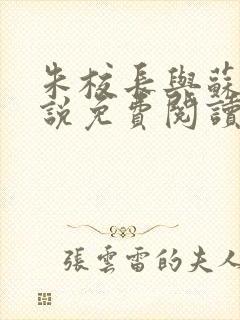 朱校長與蘇
説免費閱讀
張雲雷的夫人